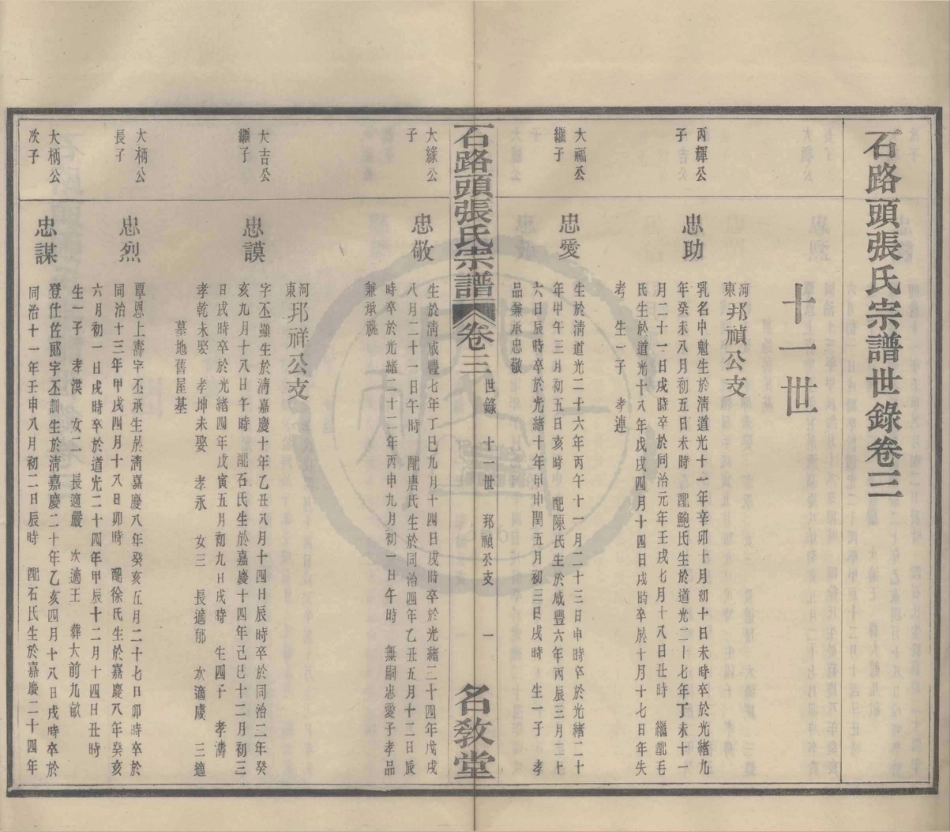 石路頭張氏宗譜世錄卷三
十一世
河東邦禎公支
丙輝公
子
忠助
乳名中勉生於清道光十一年辛卯十月初十日未時卒於光緒九
年癸未八月初五日未時 配鮑氏生於道光二十七年丁未十一
月二十一日戌時卒於同治元年壬戌七月十八日丑時 繼配毛
氏生於道光十八年戊戌四月十四日戌時卒於十月十七日年失
考 生一子 孝連
大福公
繼子
忠愛
生於清道光二十六年丙午十一月二十三日申時卒於光緒二十
年甲午三月初五日亥時 配陳氏生於咸豐六年丙辰三月二十
六日辰時卒於光緒十年甲申閏五月初三日戌時 生一子 孝
品兼承忠敬
石路頭張氏宗譜 卷三 世錄 十一世 邦禎公支 一 名教堂
大緣公
子
忠敬
生於清咸豐七年丁巳九月十四日戌時卒於光緒二十四年戊戌
八月二十一日午時 配唐氏生於同治四年乙丑五月十二日辰
時卒於光緒二十二年丙申九月初一日午時 無嗣忠愛子孝品
兼承祧
河東邦祥公支
大吉公
繼子
忠謨
字丕顯生於清嘉慶十年乙丑八月十四日辰時卒於同治二年癸
亥九月十八日午時 配石氏生於嘉慶十四年己巳十二月初三
日戌時卒於光緒四年戊寅五月初九日戌時 生四子 孝濤
孝乾未娶 孝坤未娶 孝永 女三 長適郁 次適虞 三適
墓地舊屋基
大柄公
長子
忠烈
覃恩上壽字丕承生於清嘉慶八年癸亥五月二十七日卯時卒於
同治十三年甲戌四月十八日卯時 配徐氏生於嘉慶八年癸亥
六月初一日戌時卒於道光二十四年甲辰十二月十四日丑時
生一子 孝漢 女二 長適嚴 次適王 葬大前九畝
大柄公
次子
忠謀
登仕佐郎字丕訓生於清嘉慶二十年乙亥四月十八日戌時卒於
同治十一年壬申八月初二日辰時 配石氏生於嘉慶二十四年